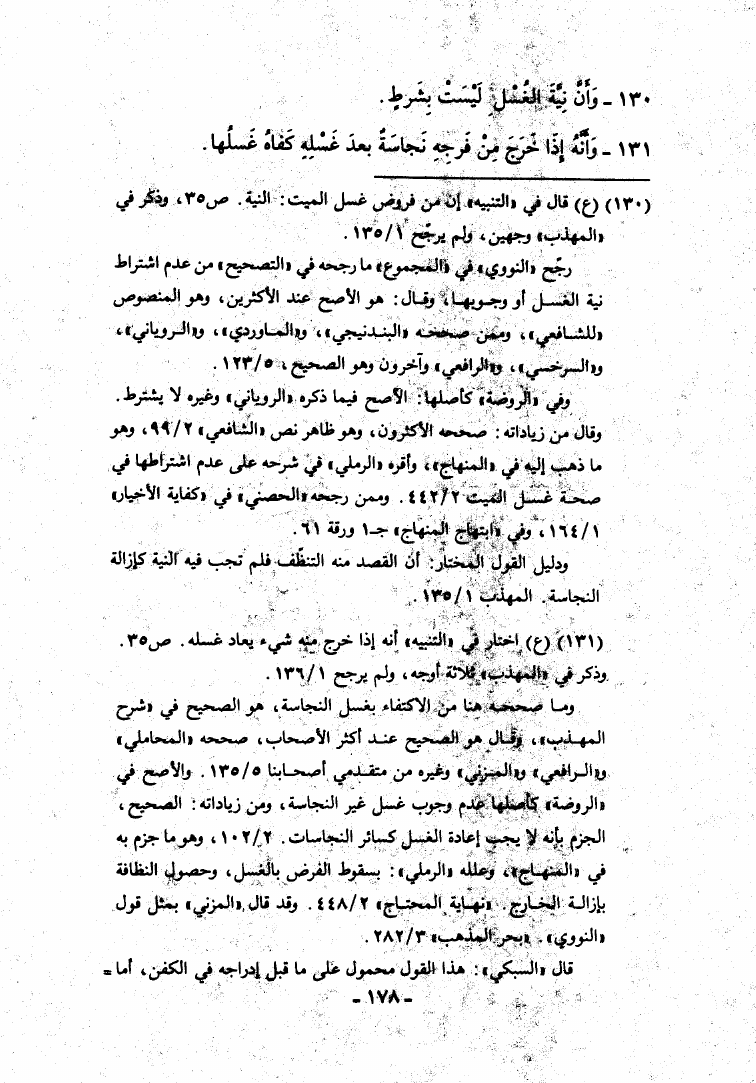 ١٣٠ - وَأَنَّ نِيَّةَ الغُسْلِ لَيْسَتْ بِشَرطٍ.
١٣١ - وَأَنَّهُ إِذَا خَرَجَ مِنْ فَرجِهِ نَجاسَةٌ بعدَ غَسْلِهِ كَفاهُ غَسلُها.
(١٣٠) (ع) قال في «التنبيه» إن من فروض غسل الميت: النية. ص٣٥، وذكر في
«المهذب» وجهين، ولم يرجّح ١٣٥/١.
رجّح «النووي» في «المجموع» ما رجحه في «التصحيح» من عدم اشتراط
نية الغسل أو وجوبها، وقال: هو الأصح عند الأكثرين، وهو المنصوص
«للشافعي»، وممن صححه «البندنيجي»، و«الماوردي»، و«الروياني»،
و«السرخسي»، و«الرافعي» وآخرون وهو الصحيح، ١٢٣/٥.
وفي «الروضة» كأصلها: الأصح فيما ذكره «الروياني» وغيره لا يشترط.
وقال من زياداته: صححه الأكثرون، وهو ظاهر نص «الشافعي» ٩٩/٢، وهو
ما ذهب إليه في «المنهاج»، وأقره «الرملي» في شرحه على عدم اشتراطها في
صحة غسل الميت ٤٤٢/٢. وممن رجحه «الحصني» في «كفاية الأخيار»
١٦٤/١، وفي «ابتهاج المنهاج» جـ١ ورقة ٦١.
ودليل القول المختار: أن القصد منه التنظّف فلم تجب فيه النية كإزالة
النجاسة. المهذب ١٣٥/١.
(١٣١) (ع) اختار في «التنبيه» أنه إذا خرج منه شيء يعاد غسله. ص٣٥.
وذكر في «المهذب» ثلاثة أوجه، ولم يرجح ١٣٦/١.
وما صححه هنا من الاكتفاء بغسل النجاسة، هو الصحيح في «شرح
المهذب»، وقال هو الصحيح عند أكثر الأصحاب، صححه «المحاملي»
و«الرافعي» و«المزني» وغيره من متقدمي أصحابنا ١٣٥/٥. والأصح في
«الروضة» كأصلها عدم وجوب غسل غير النجاسة، ومن زياداته: الصحيح،
الجزم بأنه لا يجب إعادة الغسل كسائر النجاسات. ١٠٢/٢، وهو ما جزم به
في «المنهاج»، وعلله «الرملي»: بسقوط الفرض بالغسل، وحصول النظافة
بإزالة الخارج. «نهاية المحتاج» ٤٤٨/٢. وقد قال «المزني» بمثل قول
«النووي». «بحر المذهب» ٢٨٢/٣.
قال «السبكي»: هذا القول محمول على ما قبل إدراجه في الكفن، أما =
- ١٧٨ -